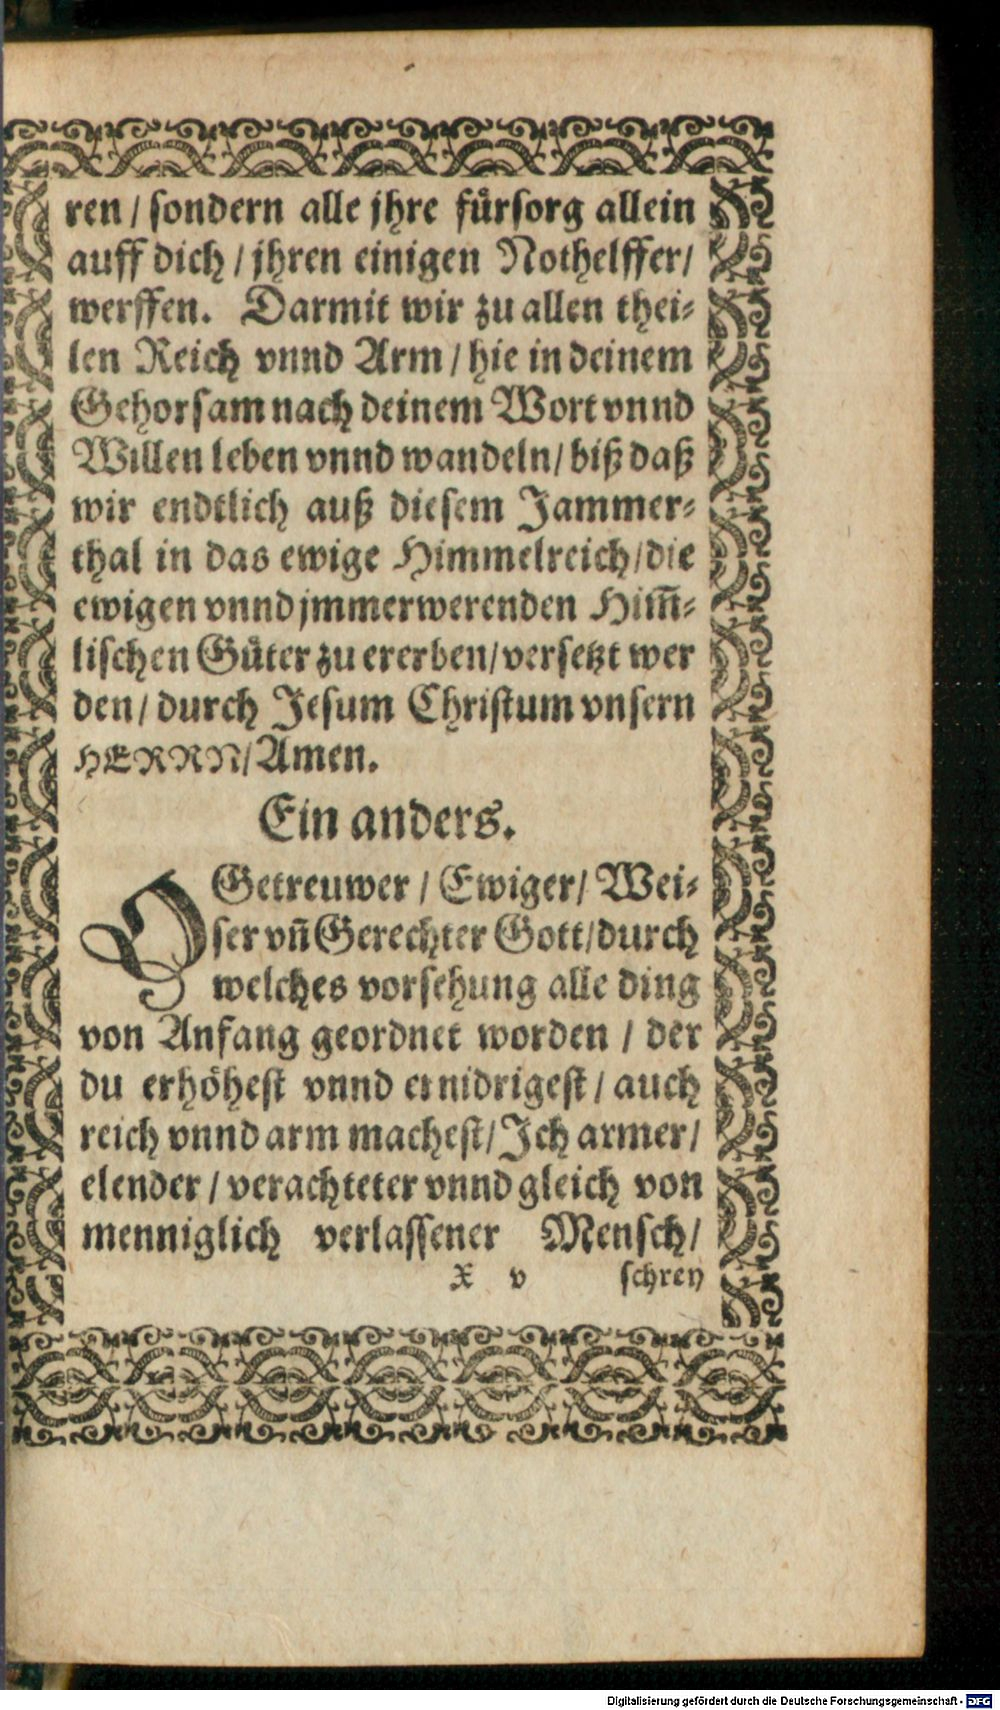 ren / sondern alle jhre fuͤrsorg allein
auff dich / jhren einigen Nothelffer /
werffen. Darmit wir zu allen thei⸗
len Reich vnnd Arm / hie in deinem
Gehorsam nach deinem Wort vnnd
Willen leben vnnd wandeln / biß daß
wir endtlich auß diesem Jammer⸗
thal in das ewige Himmelreich / die
ewigen vnnd jmmerwerenden Him̃⸗
lischen Guͤter zu ererben / versetzt wer
den / durch Jesum Christum vnsern
HERRN / Amen.
Ein anders.
O Getreuwer / Ewiger / Wei⸗
ser vñ Gerechter Gott / durch
welches vorsehung alle ding
von Anfang geordnet worden / der
du erhöhest vnnd ernidrigest / auch
reich vnnd arm machest / Ich armer /
elender / verachteter vnnd gleich von
menniglich verlassener Mensch /
X v schrey
Digitalisierung gefördert durch die Deutsche Forschungsgemeinschaft - DFG